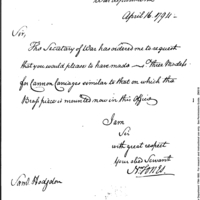 War Department
April 16. 1794.
Sir,
The Secretary of War has ordered me to request
that you would please to have made Three Models
for Cannon Carriages similar to that on which the
Brass piece is mounted now in this Office
I am
Sir
with great respect
your obed Servant
Saml Hodgdon